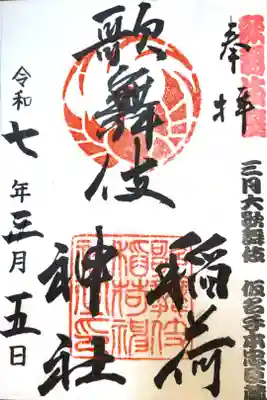 歌舞伎座
三月大歌舞伎 仮名手本忠臣蔵
奉拝
歌舞伎
稲荷
神社
令和七年三月五日